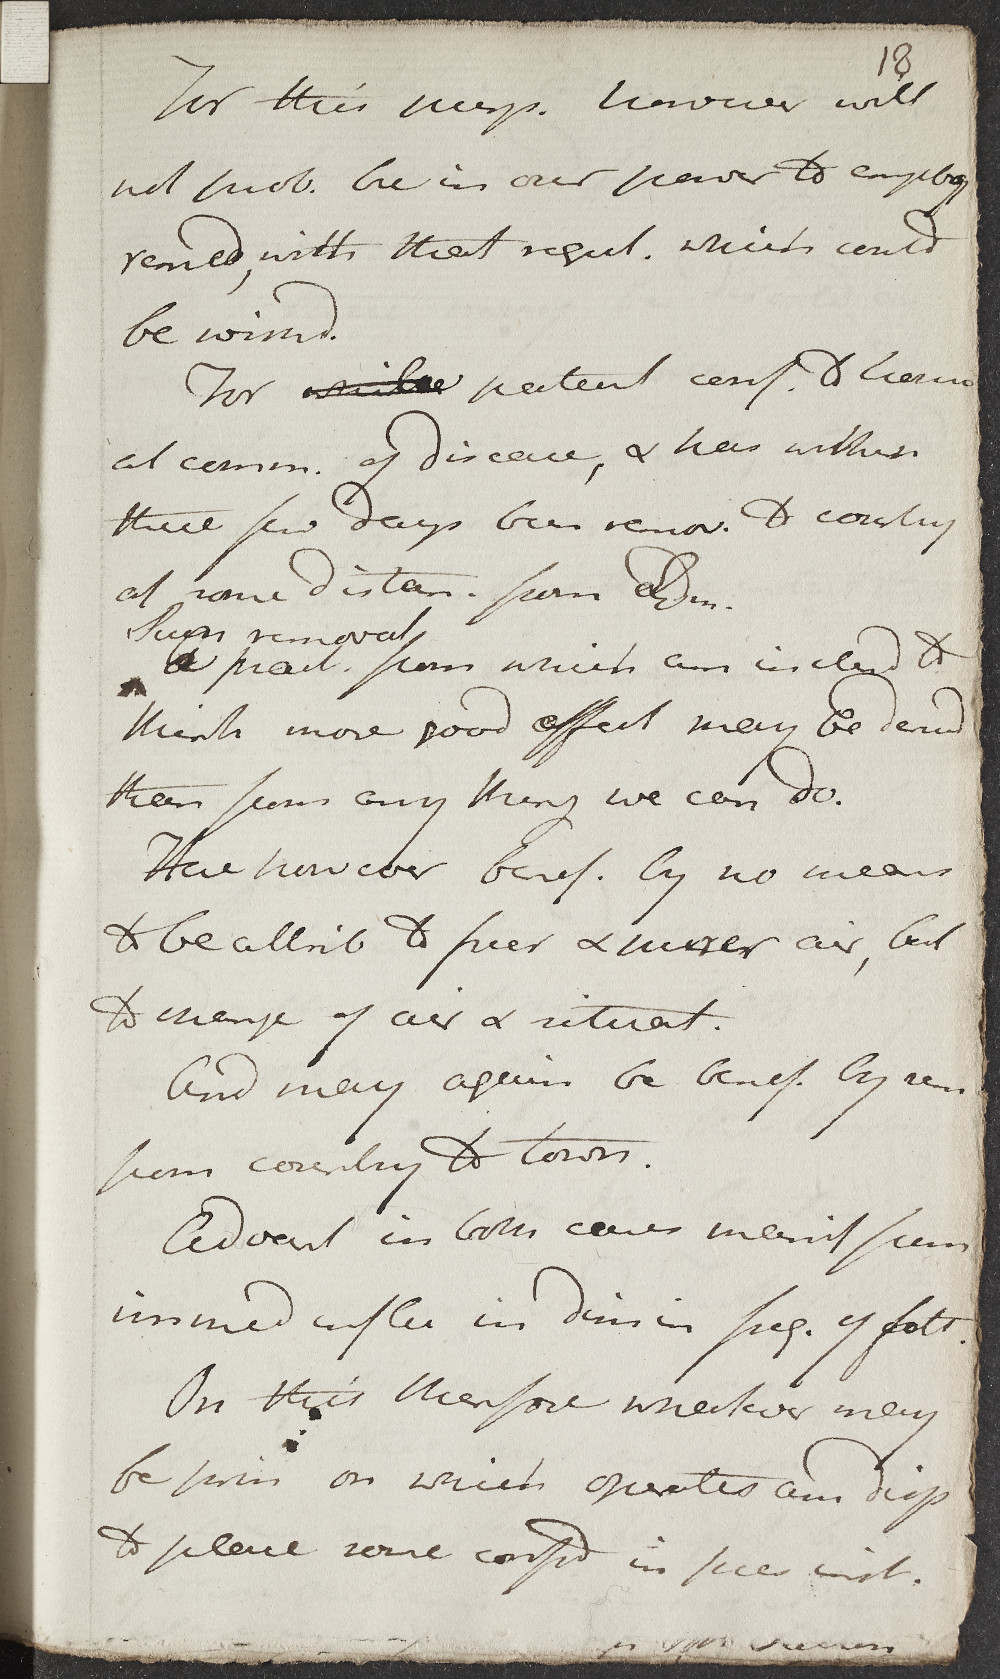 18
For this purp. however will
not prob. be in our power to employ
remed, with that regul. which could
be wishd.
For while patient conf. to home
at comm. of disease, & has within
these few days been remov. to country
at some distan. from Edin.
Such removal
a pract. from which am inclend to
think more good effect may be derivd
than from any thing we can do.
This however benef. by no means
to be attrib to freer & purer air, but
to change of air & situat.
And may again be benef. by rem
from country to town.
Advant in both cases manif from
immed in dimin freq. of
On this therefore whatever may
be prin on which operates am disp
to place some confid in pres inst.